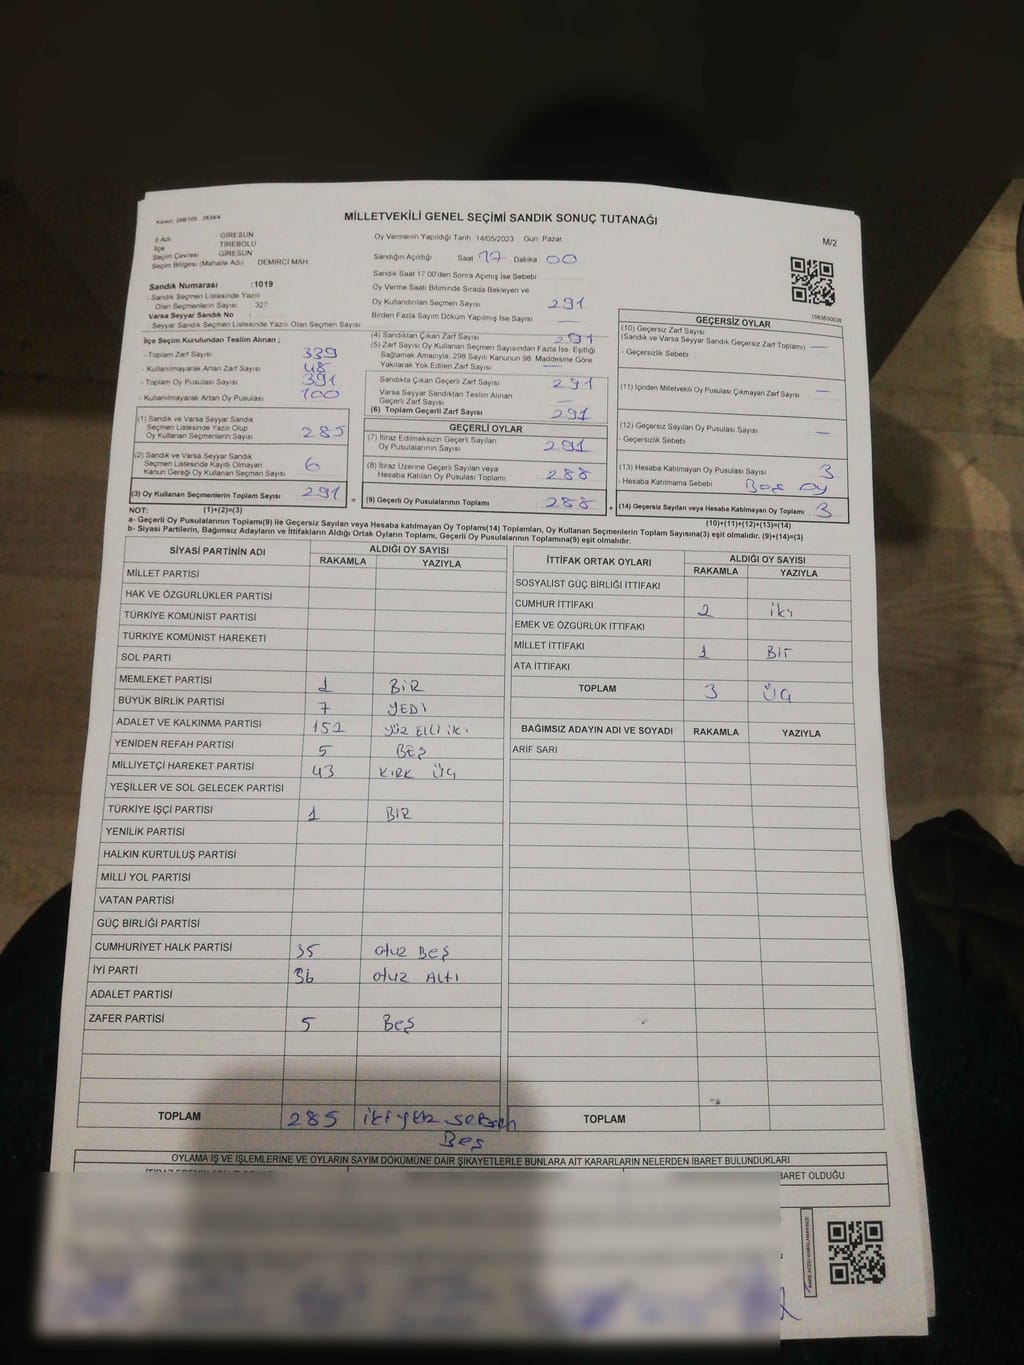 Kanun: 298/105 - 2839/4
MİLLETVEKİLİ GENEL SEÇİMİ SANDIK SONUÇ TUTANAĞI
M/2
İl Adı GİRESUN
İlçe TİREBOLU
Seçim Çevresi GİRESUN
Seçim Bölgesi (Mahalle Adı) DEMİRCİ MAH
Sandık Numarası :1019
- Sandık Seçmen Listesinde Yazılı
Olan Seçmenlerin Sayısı : 327
Varsa Seyyar Sandık No :
- Seyyar Sandık Seçmen Listesinde Yazılı Olan Seçmen Sayısı
İlçe Seçim Kurulundan Teslim Alınan ;
- Toplam Zarf Sayısı 339
- Kullanılmayarak Artan Zarf Sayısı 48
- Toplam Oy Pusulası Sayısı 391
- Kullanılmayarak Artan Oy Pusulası 100
(1) Sandık ve Varsa Seyyar Sandık
Seçmen Listesinde Yazılı Olup
Oy Kullanan Seçmenlerin Sayısı 285
(2) Sandık ve Varsa Seyyar Sandık
Seçmen Listesinde Kayıtlı Olmayan
Kanun Gereği Oy Kullanan Seçmen Sayısı 6
(3) Oy Kullanan Seçmenlerin Toplam Sayısı 291 =
NOT: (1)+(2)=(3)
Oy Vermenin Yapıldığı Tarih 14/05/2023 Gün Pazar
Sandığın Açıldığı Saat 17 Dakika 00
Sandık Saat 17.00'den Sonra Açımış İse Sebebi
Oy Verme Saati Bitiminde Sırada Bekleyen ve
Oy Kullandırılan Seçmen Sayısı 291
Birden Fazla Sayım Döküm Yapılmış İse Sayısı
(4) Sandıktan Çıkan Zarf Sayısı 291
(5) Zarf Sayısı Oy Kullanan Seçmen Sayısından Fazla İse, Eşitliği
Sağlamak Amacıyla, 298 Sayılı Kanunun 98. Maddesine Göre
Yakılarak Yok Edilen Zarf Sayısı —
Sandıkta Çıkan Geçerli Zarf Sayısı 291
Varsa Seyyar Sandıktan Teslim Alınan
Geçerli Zarf Sayısı —
(6) Toplam Geçerli Zarf Sayısı 291
GEÇERLİ OYLAR
(7) İtiraz Edilmeksizin Geçerli Sayılan
Oy Pusulalarının Sayısı 291
(8) İtiraz Üzerine Geçerli Sayılan veya
Hesaba Katılan Oy Pusulası Toplamı 288
(9) Geçerli Oy Pusulalarının Toplamı 288 +
1083630036
GEÇERSİZ OYLAR
(10) Geçersiz Zarf Sayısı
(Sandık ve Varsa Seyyar Sandık Geçersiz Zarf Toplamı) —
- Geçersizlik Sebebi
(11) İçinden Milletvekili Oy Pusulası Çıkmayan Zarf Sayısı —
(12) Geçersiz Sayılan Oy Pusulası Sayısı —
- Geçersizlik Sebebi
(13) Hesaba Katılmayan Oy Pusulası Sayısı 3
- Hesaba Katılmama Sebebi Boş oy
(14) Geçersiz Sayılan veya Hesaba Katılmayan Oy Toplamı 3
(10)+(11)+(12)+(13)=(14)
a- Geçerli Oy Pusulalarının Toplamı(9) ile Geçersiz Sayılan veya Hesaba katılmayan Oy Toplamı(14) Toplamları, Oy Kullanan Seçmenlerin Toplam Sayısına(3) eşit olmalıdır. (9)+(14)=(3)
b- Siyasi Partilerin, Bağımsız Adayların ve İttifakların Aldığı Ortak Oyların Toplamı, Geçerli Oy Pusulalarının Toplamına(9) eşit olmalıdır.
SİYASİ PARTİNİN ADI ALDIĞI OY SAYISI
RAKAMLA YAZIYLA
MİLLET PARTİSİ
HAK VE ÖZGÜRLÜKLER PARTİSİ
TÜRKİYE KOMÜNİST PARTİSİ
TÜRKİYE KOMÜNİST HAREKETİ
SOL PARTİ
MEMLEKET PARTİSİ 1 BİR
BÜYÜK BİRLİK PARTİSİ 7 YEDİ
ADALET VE KALKINMA PARTİSİ 152 yüz Elli iki
YENİDEN REFAH PARTİSİ 5 BEŞ
MİLLİYETÇİ HAREKET PARTİSİ 43 KIRK ÜÇ
YEŞİLLER VE SOL GELECEK PARTİSİ
TÜRKİYE İŞÇİ PARTİSİ 1 BİR
YENİLİK PARTİSİ
HALKIN KURTULUŞ PARTİSİ
MİLLİ YOL PARTİSİ
VATAN PARTİSİ
GÜÇ BİRLİĞİ PARTİSİ
CUMHURİYET HALK PARTİSİ 35 otuz Beş
İYİ PARTİ 36 otuz Altı
ADALET PARTİSİ
ZAFER PARTİSİ 5 Beş
TOPLAM 285 iki yüz seksen
Beş
İTTİFAK ORTAK OYLARI ALDIĞI OY SAYISI
RAKAMLA YAZIYLA
SOSYALİST GÜÇ BİRLİĞİ İTTİFAKI
CUMHUR İTTİFAKI 2 iki
EMEK VE ÖZGÜRLÜK İTTİFAKI
MİLLET İTTİFAKI 1 Bir
ATA İTTİFAKI
TOPLAM 3 ÜÇ
BAĞIMSIZ ADAYIN ADI VE SOYADI RAKAMLA YAZIYLA
ARİF SARI
TOPLAM
OYLAMA İŞ VE İŞLEMLERİNE VE OYLARIN SAYIM DÖKÜMÜNE DAİR ŞİKAYETLERLE BUNLARA AİT KARARLARIN NELERDEN İBARET BULUNDUKLARI
BARET OLDUĞU